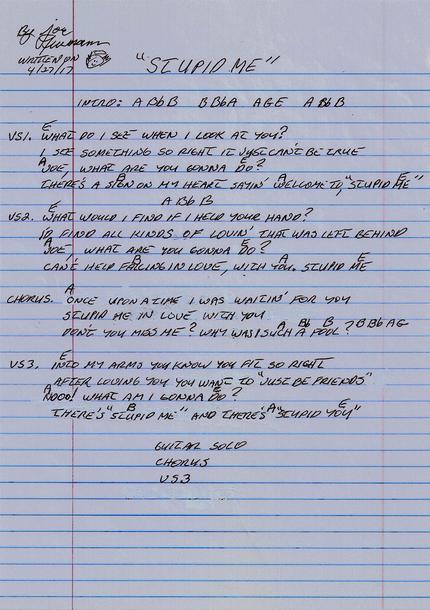 By Joe
WRITTEN ON
4/27/17
"STUPID ME"
INTRO: A Bb B   B Bb A   A G E   A Bb B
E
VS1. WHAT DO I SEE WHEN I LOOK AT YOU?
I SEE SOMETHING SO RIGHT IT JUST CAN'T BE TRUE
A E
JOE, WHAT ARE YOU GONNA DO?
B A E
THERE'S A SIGN ON MY HEART SAYIN' WELCOME TO, "STUPID ME"
A Bb B
E
VS2. WHAT WOULD I FIND IF I HELD YOUR HAND?
I'D FIND ALL KINDS OF LOVIN' THAT WAS LEFT BEHIND
A E
JOE, WHAT ARE YOU GONNA DO?
B A E
CAN'T HELP FALLING IN LOVE, WITH YOU. STUPID ME
A
CHORUS. ONCE UPON A TIME I WAS WAITIN' FOR YOU
STUPID ME IN LOVE WITH YOU
A Bb B
DON'T YOU MISS ME? WHY WAS I SUCH A FOOL? B Bb A G
E
VS3. INTO MY ARMS YOU KNOW YOU FIT SO RIGHT
AFTER LOVING YOU YOU WANT TO "JUST BE FRIENDS"
A E
NOOO! WHAT AM I GONNA DO?
B A E
THERE'S "STUPID ME" AND THERE'S "STUPID YOU"
GUITAR SOLO
CHORUS
VS3